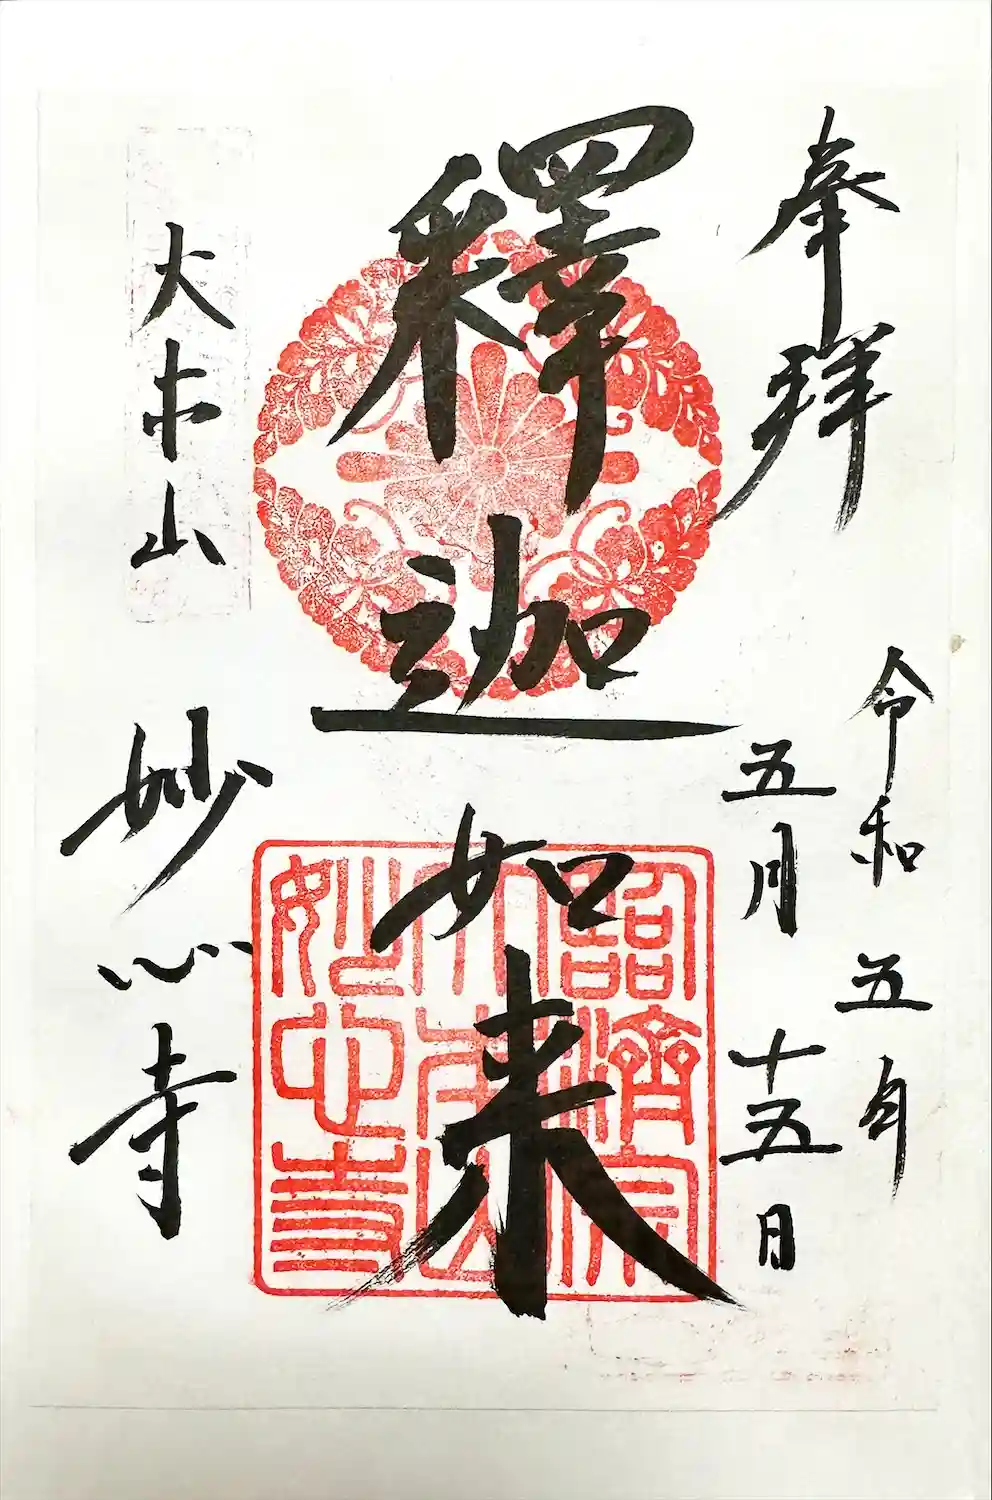 奉拝
令和五年
五月十五日
釋迦如来
大本山
妙心寺
臨濟宗
大本山
妙心寺